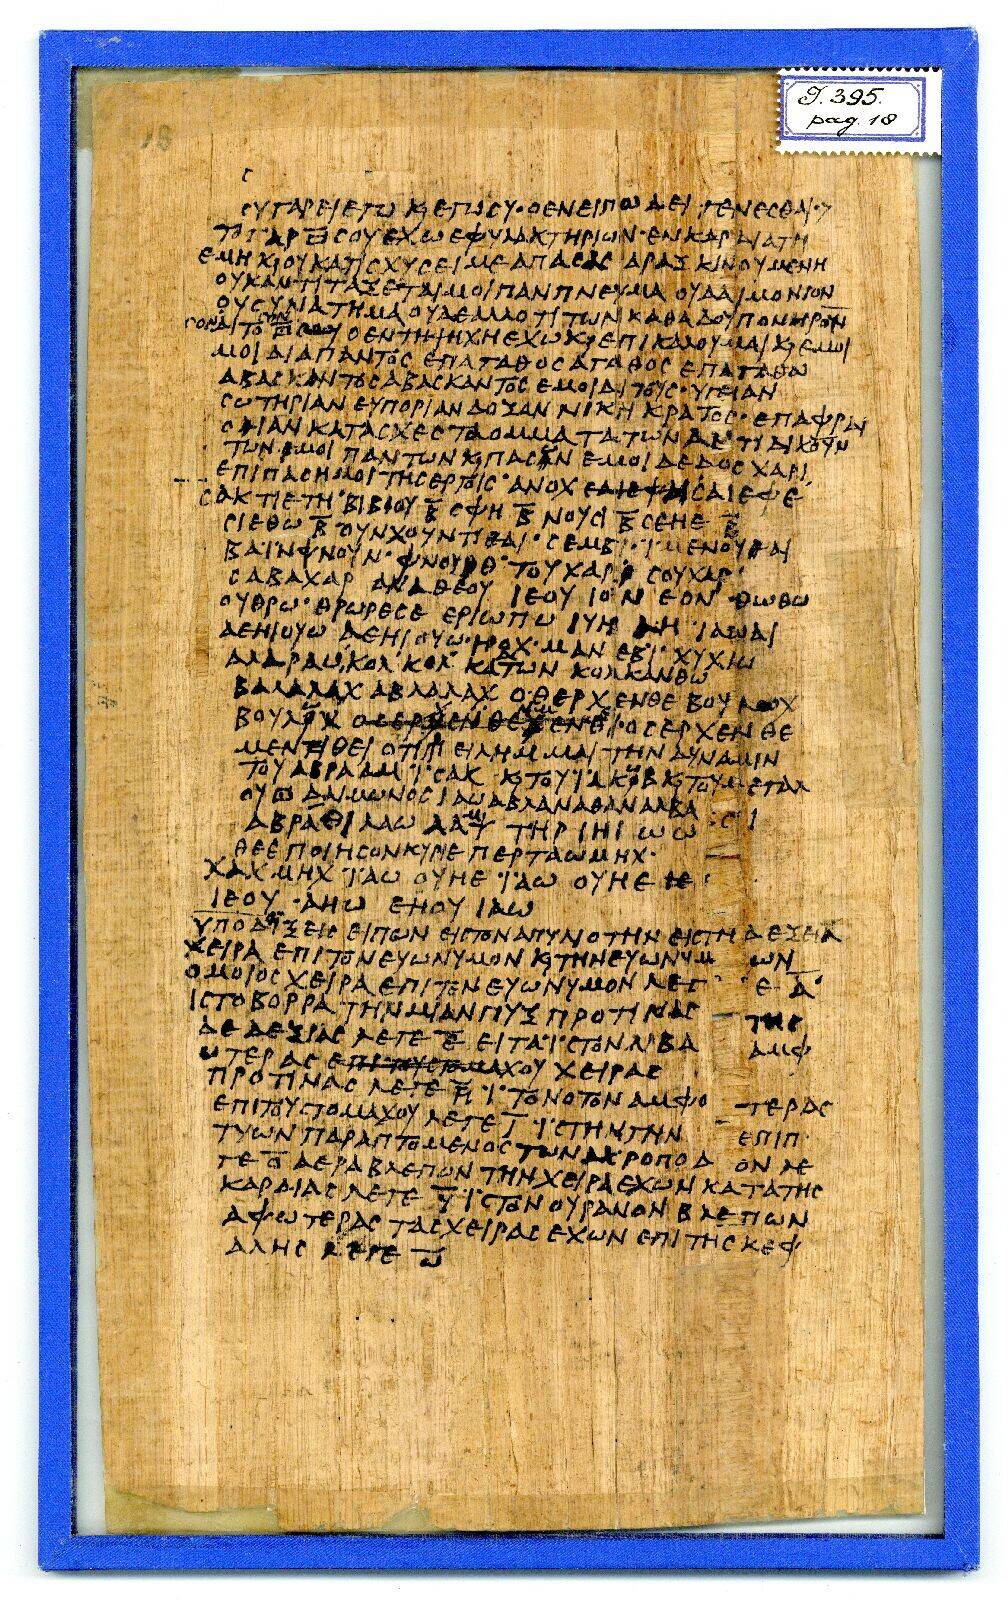 J. 395.
pag. 18
18
ϹΥΓΑΡΕΙΕΓΩ ΚΕΓΩϹΥ·ΟΕΝΕΙΠΩ ΔΕΙ ΓΕΝΕϹΘΑΙ·
ΤΟΓΑΡ ϹΟΥ ΕΧΩ ΕΦΥΛΑΚΤΗΡΙΩΝ·ΕΝΚΑΡΔΙΑΤΗ
ΕΜΗ ΚΟΥΚΑΤΙϹΧΥϹΕΙΜΕ ΑΠΑϹΑ ΔΡΑΞ ΚΙΝΟΥΜΕΝΗ
ΟΥΚΑΝΤΙΤΑΞΕΤΑΙΜΟΙ ΠΑΝΠΝΕΥΜΑ ΟΥΔΑΙΜΟΝΙΟΝ
ΟΥϹΥΝΑΤΗΜΑ ΟΥΔΕΑΛΛΟΤΙ ΤΩΝ ΚΑΘΑΔΟΥΠΟΝΗΡΩΝ
ΔΙΤΟ ϹΟΥ ΟΕΝΤΗΨΗΧΗΕΧΩ ΚΕΠΙΚΑΛΟΥΜΑΙ
ΜΟΙ ΔΙΑΠΑΝΤΟϹ ΕΠΑΓΑΘΟϹΑΓΑΘΟϹ ΕΠΑΓΑΘΩ
ΑΒΑϹΚΑΝΤΟϹ ΑΒΑϹΚΑΝΤΟϹ ΕΜΟΙΔΙΤΟΥϹ ΥΓΕΙΑΝ
ϹΩΤΗΡΙΑΝ ΕΥΠΟΡΙΑΝ ΔΟΞΑΝ ΝΙΚΗ ΚΡΑΤΟϹ·ΕΠΑΦΡΔΙ
ϹΙΑΝ ΚΑΤΑϹΧΕϹ ΤΑΟΜΜΑΤΑΤΩΝ ΑΝΤΙΔΙΚΟΥΝ
ΤΩΝ ΕΜΟΙ ΠΑΝΤΩΝ ΚΠΑϹΩΝ ΕΜΟΙ ΔΕΔΟϹ ΧΑΡΙ
ΕΠΙ ΠΑϹΗ ΜΟΙ ΤΗϹΕΡΓΟΙϹ ΑΝΟΧ ϹΑΙΕΦΕ
ϹΑΚΤΙΕΤΗ ΒΙΒΙΟΥ Β ϹΦΗ Β ΝΟΥϹΙ Β ϹΕΗΕ Β
ϹΙΕΘΩ Β ΟΥΝΧΟΥΝΤΙΑΙ ϹΕΜΒΙ ΙΜΕΝΟΥΑΙ
ΒΑΙΝΦΝΟΥΝ ΦΝΟΥΘ ΤΟΥΧΑΡ ϹΟΥΧΑΡ
ϹΑΒΑΧΑΡ ΑΝΑ ΘΕΟΥ ΙΕΟΥ ΙΟΝ ΕΟΝ ΘΩΘΩ
ΟΥΘΡΩ ΘΡΩΡΕϹΕ ΕΡΙΩΠΩ ΙΥΗ ΑΗ ΙΑΩΑΙ
ΑΕΗΙΟΥΩ ΑΕΗΙΟΥΩ ΗΟΧ ΜΑΝΕΒΙ ΧΥΧΙΩ
ΑΛΑΡΑΩ ΚΟΛ ΚΟΛ ΚΑΤΩΝ ΚΟΛΚΑΝΘΩ
ΒΑΛΑΛΑΧ ΑΒΛΑΛΑΧ ΟΘΕΡΧΕΝΘΕ ΒΟΥΛΟΧ
ΒΟΥΛΟΧ ΟϹΕΡΧΕΝΘΕ
ΜΕΝΤΗΘΕΙ ΟΤΙ ΠΕΙΛΗΜΜΑΙ ΤΗΝ ΔΥΝΑΜΙΝ
ΤΟΥ ΑΒΡΑΑΜ ΙϹΑΚ ΚΤΟΥ ΙΑΚΩΒ ΚΤΟΥΜΕΓΑΛ
ΟΥ ΔΑΙΜΩΝΟϹ ΙΑΩ ΑΒΛΑΝΑΘΑΝΑΛΒΑ
ΑΒΡΑΘΙΛΑΩ ΛΑΜΥ ΤΗΡ ΙΗΙ ΩΩ
ΘΕΕ ΠΟΙΗϹΟΝ ΚΥΡΙΕ ΠΕΡΤΑΩΜΗΧ
ΧΑΧ ΜΗΧ ΙΑΩ ΟΥΗΕ ΙΑΩ ΟΥΗΕ
ΙΕΟΥ ΑΗΩ ΕΗΟΥ ΙΑΩ
ΥΠΟΔΙΞΕΙϹ ΕΙΠΩΝ ΕΙϹΤΟΝΑΠΥΛΙΟΤΗΝ ΕΙϹΤΗ ΔΕΞΕΙΑ
ΧΕΙΡΑ ΕΠΙΤΟΝΕΥΩΝΥΜΟΝ ΚΤΗΝΕΥΩΝΥΜ ΩΝ
ΟΜΟΙΟϹ ΧΕΙΡΑ ΕΠΙΤΟΝΕΥΩΝΥΜΟΝ ΛΕΓ Ε Α
ΙϹΤΟΒΟΡΡΑ ΤΗΝ ΜΙΑΝ ΠΥΞ ΠΡΟΤΙΝΑϹ ΤΗϹ
ΔΕ ΔΕΞΙΑϹ ΛΕΓΕ Ε ΕΙΤΑ ΙϹΤΟΝΛΙΒΑ ΑΜΦ
ΩΤΕΡΑϹ ΧΕΙΡΑϹ
ΠΡΟΤΙΝΑϹ ΛΕΓΕ Η Ι ΤΟΝΟΤΟΝ ΑΜΦΟ ΤΕΡΑϹ
ΕΠΙΤΟΥϹΤΟΜΑΧΟΥ ΛΕΓΕ Ι ΙϹΤΗΝΓΗΝ ΕΠΙΠ
ΤΥΩΝ ΠΑΡΑΠΤΟΜΕΝΟϹ ΤΩΝ ΑΚΡΟΠΟΔ ΟΝ ΛΕ
ΓΕ Ο ΑΕΡΑ ΒΛΕΠΩΝ ΤΗΝ ΧΕΙΡΑ ΕΧΩΝ ΚΑΤΑ ΤΗϹ
ΚΑΡΔΙΑϹ ΛΕΓΕ Υ ΙϹΤΟΝΟΥΡΑΝΟΝ ΒΛΕΠΩΝ
ΑΦΩΤΕΡΑϹ ΤΑϹΧΕΙΡΑϹ ΕΧΩΝ ΕΠΙ ΤΗϹ ΚΕΦ
ΑΛΗϹ ΛΕΓΕ Ω